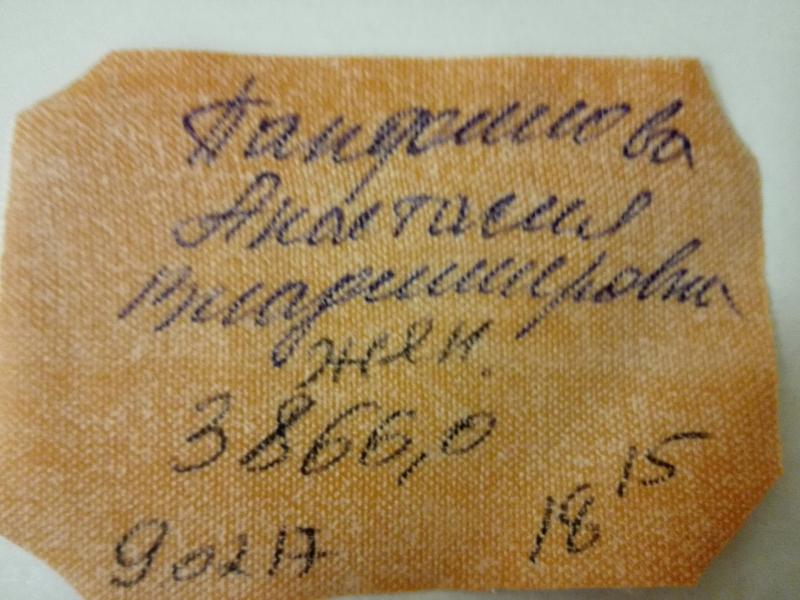 Анастасия
Владимировна
жен.
3866,0
18 15
9 02 17